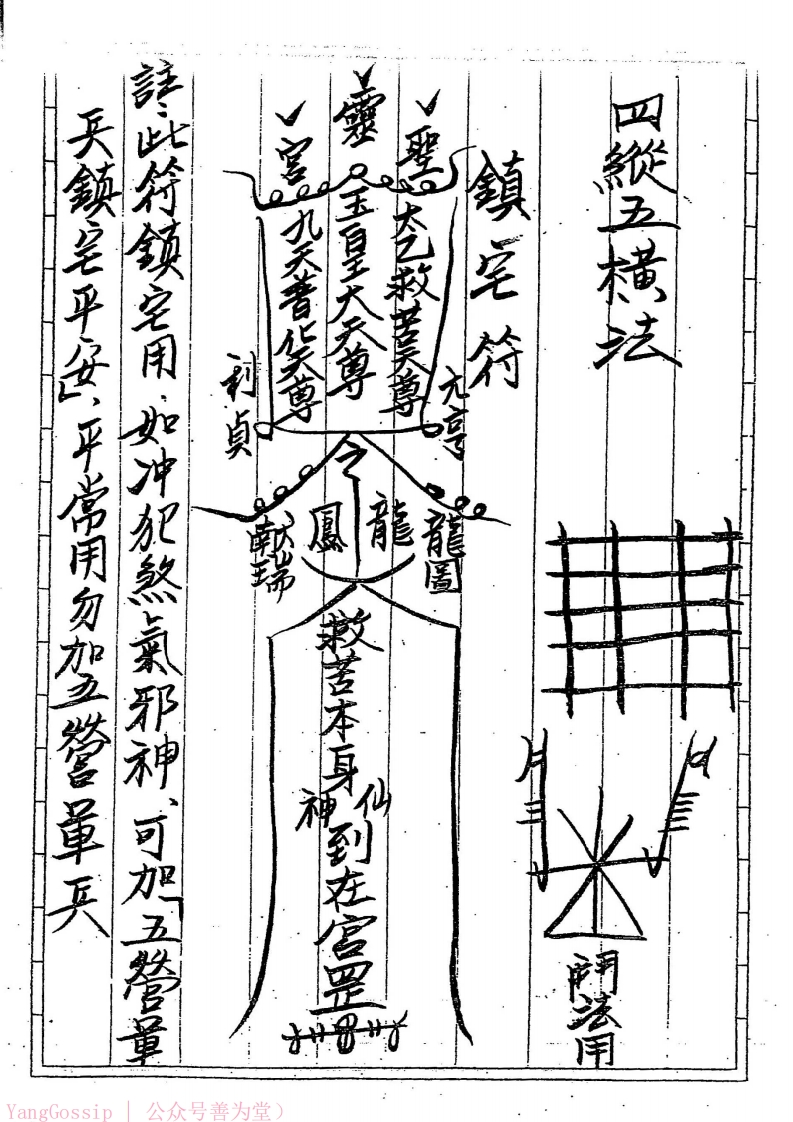 四縱五橫法
鬥法用
鎮宅符
聖
靈
宮
太乙救苦天尊
玉皇大天尊
九天普化天尊
元亨
利貞
令
龍圖
龍
鳳
獻瑞
救苦本身
神仙
到在宮罡
註:此符鎮宅用.如冲犯煞氣邪神、可加「五營軍
兵鎮宅平安」、平常用勿加五營軍兵
YangGossip | 公众号善为堂）